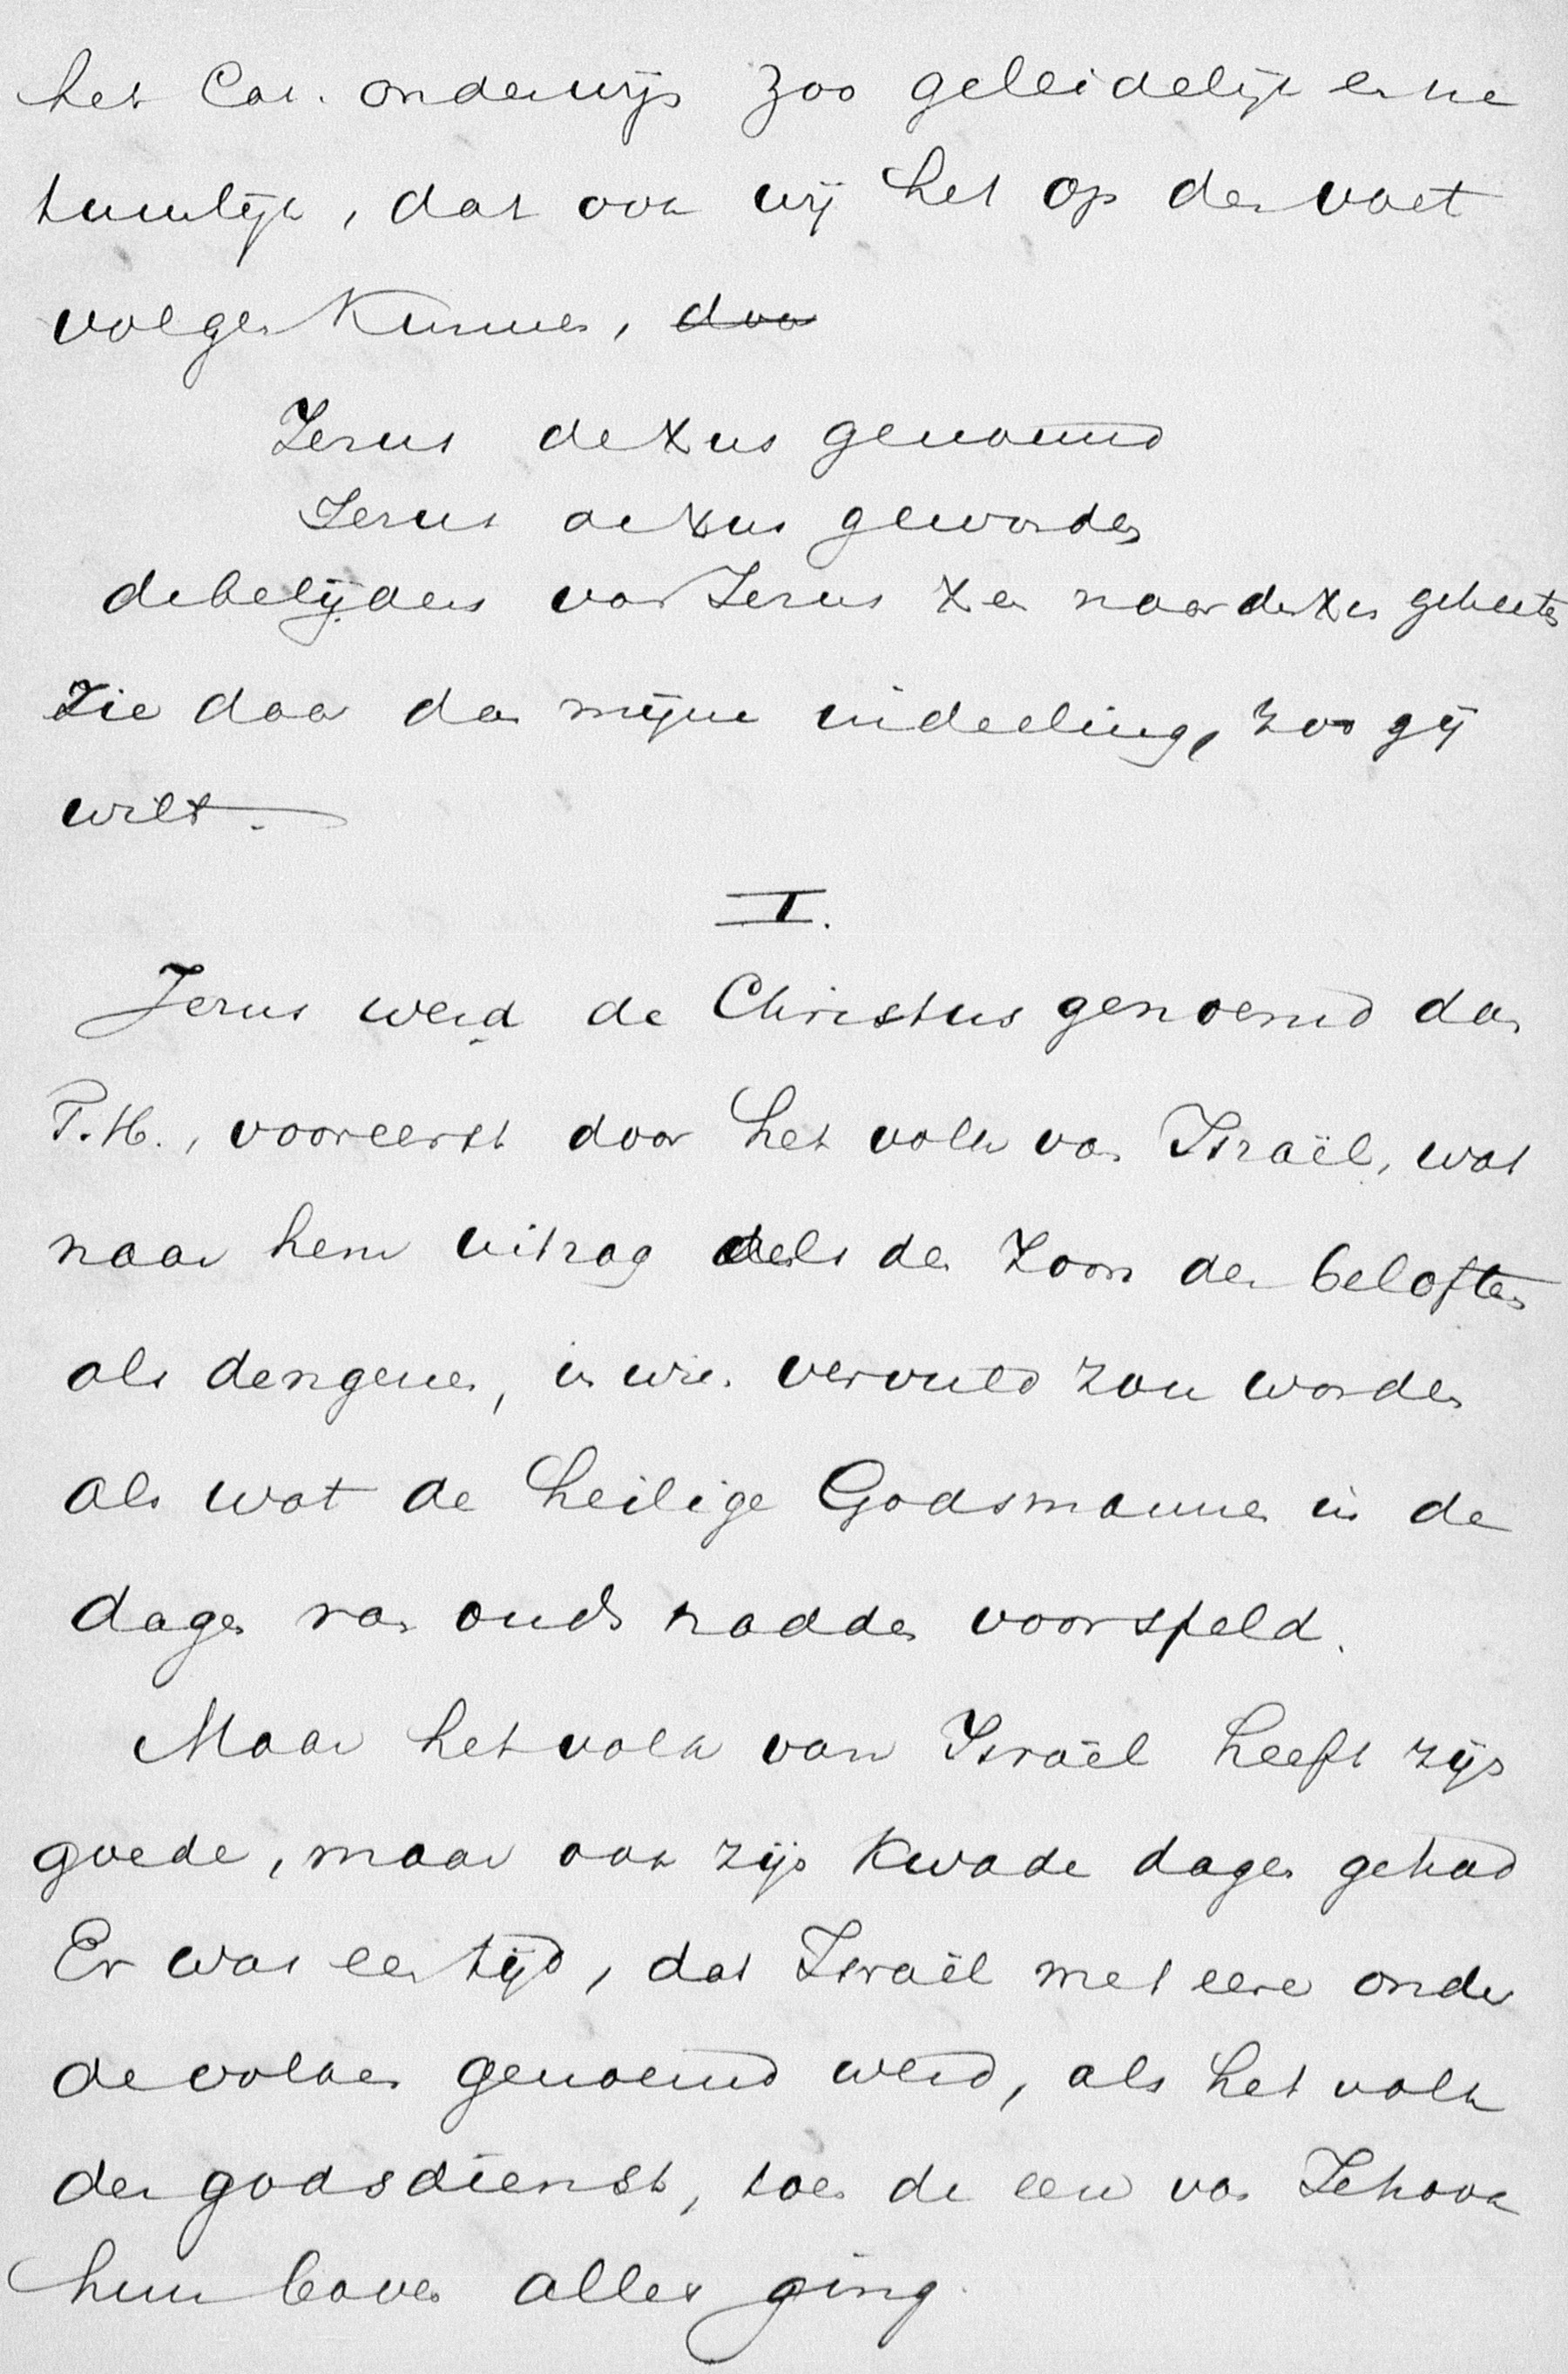 het Cat. onderwijs zoo geleidelijk en na
tuurlijk, dat ook wij het op den voet
volgen kunnen, door
Jezus de Xus genoemd
Jezus de Xus geworden
de belijders van Jezus Xen naar den Xus geheeten
Zie daar dan mijne indeeling, zoo gij
wilt.
I.
Jezus werd de Christus genoemd dan
T. H., vooreerst door het volk van Israël, wat
naar hem uitzag als den Zoon der beloften
als dengenen, in wien vervuld zou worden
als wat de heilige Godsmannen in de
dagen van ouds hadden voorspeld.
Maar het volk van Israël heeft zijn
goede, maar ook zijn kwade dagen gehad
Er was een tijd, dat Israël met eere onder
de volken genoemd werd, als het volk
der godsdienst, toen de eer van Jehova
hun boven alles ging.